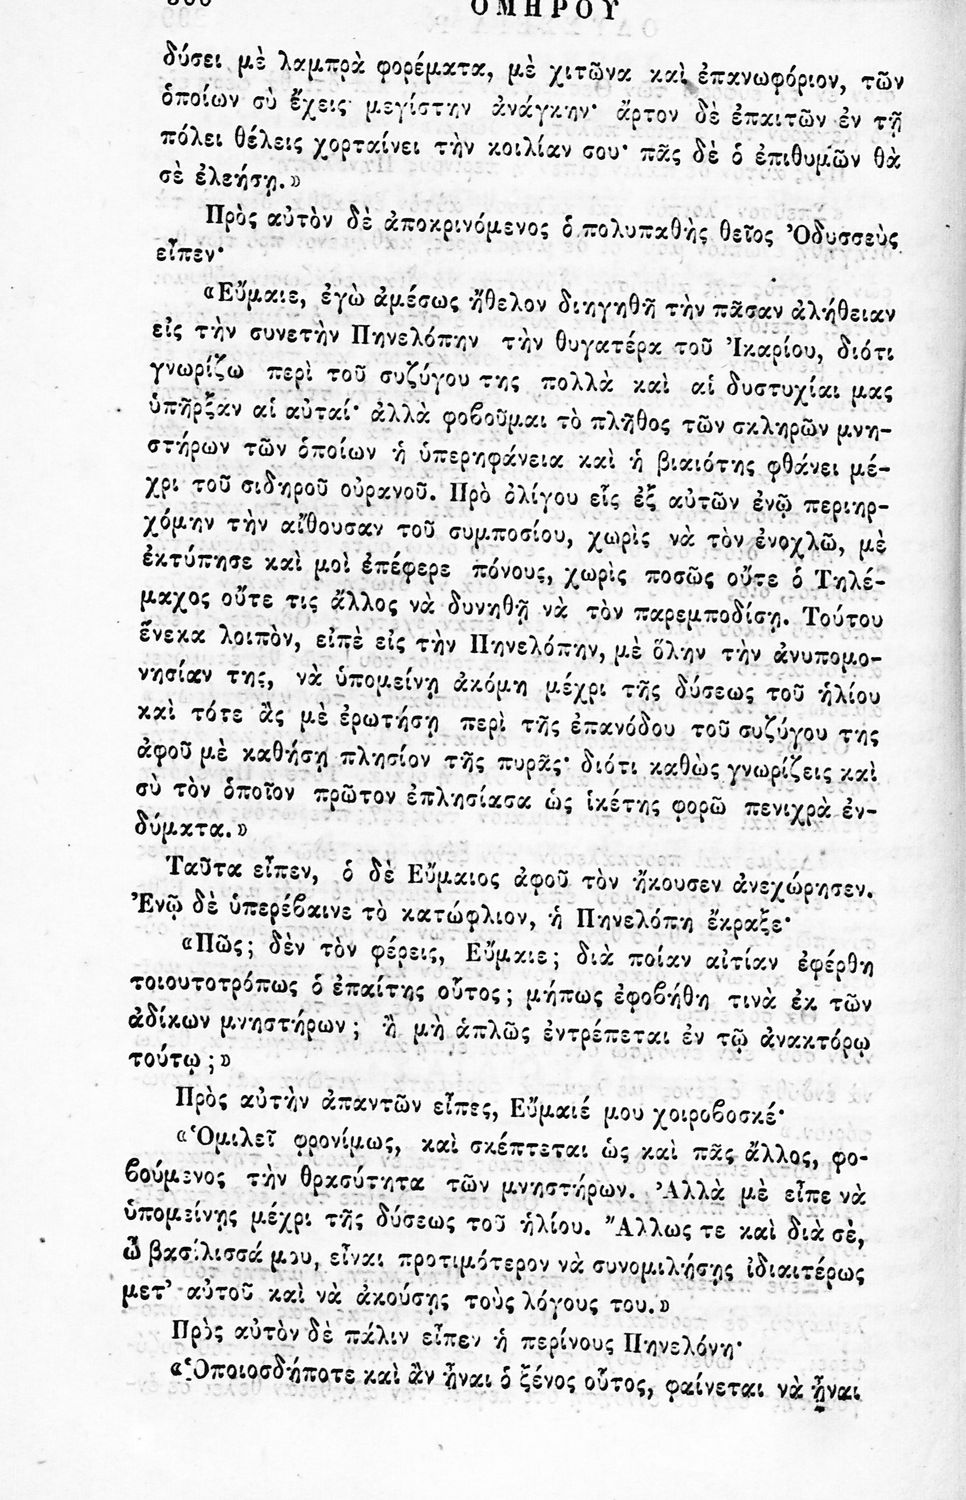 ΟΜΗΡΟΥ
δύσει μὲ λαμπρὰ φορέματα, μὲ χιτῶνα καὶ ἐπανωφόριον, τῶν
ὁποίων σὺ ἔχεις μεγίστην ἀνάγκην· ἄρτον δὲ ἐπαιτῶν ἐν τῇ
πόλει θέλεις χορταίνει τὴν κοιλίαν σου· πᾶς δὲ ὁ ἐπιθυμῶν θὰ
σὲ ἐλεήσῃ.»
Πρὸς αὐτὸν δὲ ἀποκρινόμενος ὁ πολυπαθὴς θεῖος Ὀδυσσεὺς
εἶπεν·
«Εὔμαιε, ἐγὼ ἀμέσως ἤθελον διηγηθῆ τὴν πᾶσαν ἀλήθειαν
εἰς τὴν συνετὴν Πηνελόπην τὴν θυγατέρα τοῦ Ἰκαρίου, διότι
γνωρίζω περὶ τοῦ συζύγου της πολλὰ καὶ αἱ δυστυχίαι μας
ὑπῆρξαν αἱ αὐταί· ἀλλὰ φοβοῦμαι τὸ πλῆθος τῶν σκληρῶν μνη-
στήρων τῶν ὁποίων ἡ ὑπερηφάνεια καὶ ἡ βιαιότης φθάνει μέ-
χρι τοῦ σιδηροῦ οὐρανοῦ. Πρὸ ὀλίγου εἷς ἐξ αὐτῶν ἐνῷ περιηρ-
χόμην τὴν αἴθουσαν τοῦ συμποσίου, χωρὶς νὰ τὸν ἐνοχλῶ, μὲ
ἐκτύπησε καὶ μοὶ ἐπέφερε πόνους, χωρὶς ποσῶς οὔτε ὁ Τηλέ-
μαχος οὔτε τις ἄλλος νὰ δυνηθῇ νὰ τὸν παρεμποδίσῃ. Τούτου
ἕνεκα λοιπὸν, εἰπὲ εἰς τὴν Πηνελόπην, μὲ ὅλην τὴν ἀνυπομο-
νησίαν της, νὰ ὑπομείνῃ ἀκόμη μέχρι τῆς δύσεως τοῦ ἡλίου
καὶ τότε ἂς μὲ ἐρωτήσῃ περὶ τῆς ἐπανόδου τοῦ συζύγου της
ἀφοῦ μὲ καθήσῃ πλησίον τῆς πυρᾶς· διότι καθὼς γνωρίζεις καὶ
σὺ τὸν ὁποῖον πρῶτον ἐπλησίασα ὡς ἱκέτης φορῶ πενιχρὰ ἐν-
δύματα.»
Ταῦτα εἶπεν, ὁ δὲ Εὔμαιος ἀφοῦ τὸν ἤκουσεν ἀνεχώρησεν.
Ἐνῷ δὲ ὑπερέβαινε τὸ κατώφλιον, ἡ Πηνελόπη ἔκραξε·
«Πῶς; δὲν τὸν φέρεις, Εὔμαιε; διὰ ποίαν αἰτίαν ἐφέρθη
τοιουτοτρόπως ὁ ἐπαίτης οὗτος; μήπως ἐφοβήθη τινὰ ἐκ τῶν
ἀδίκων μνηστήρων; ἢ μὴ ἁπλῶς ἐντρέπεται ἐν τῷ ἀνακτόρῳ
τούτῳ;»
Πρὸς αὐτὴν ἀπαντῶν εἶπες, Εὔμαιέ μου χοιροβοσκέ·
«Ὁμιλεῖ φρονίμως, καὶ σκέπτεται ὡς καὶ πᾶς ἄλλος, φο-
βούμενος τὴν θρασύτητα τῶν μνηστήρων. Ἀλλὰ μὲ εἶπε νὰ
ὑπομείνῃς μέχρι τῆς δύσεως τοῦ ἡλίου. Ἄλλως τε καὶ διὰ σὲ,
ὦ βασίλισσά μου, εἶναι προτιμότερον νὰ συνομιλήσῃς ἰδιαιτέρως
μετ' αὐτοῦ καὶ νὰ ἀκούσῃς τοὺς λόγους του.»
Πρὸς αὐτὸν δὲ πάλιν εἶπεν ἡ περίνους Πηνελόνη·
«Ὁποιοσδήποτε καὶ ἂν ἦναι ὁ ξένος οὗτος, φαίνεται νὰ ᾖναι